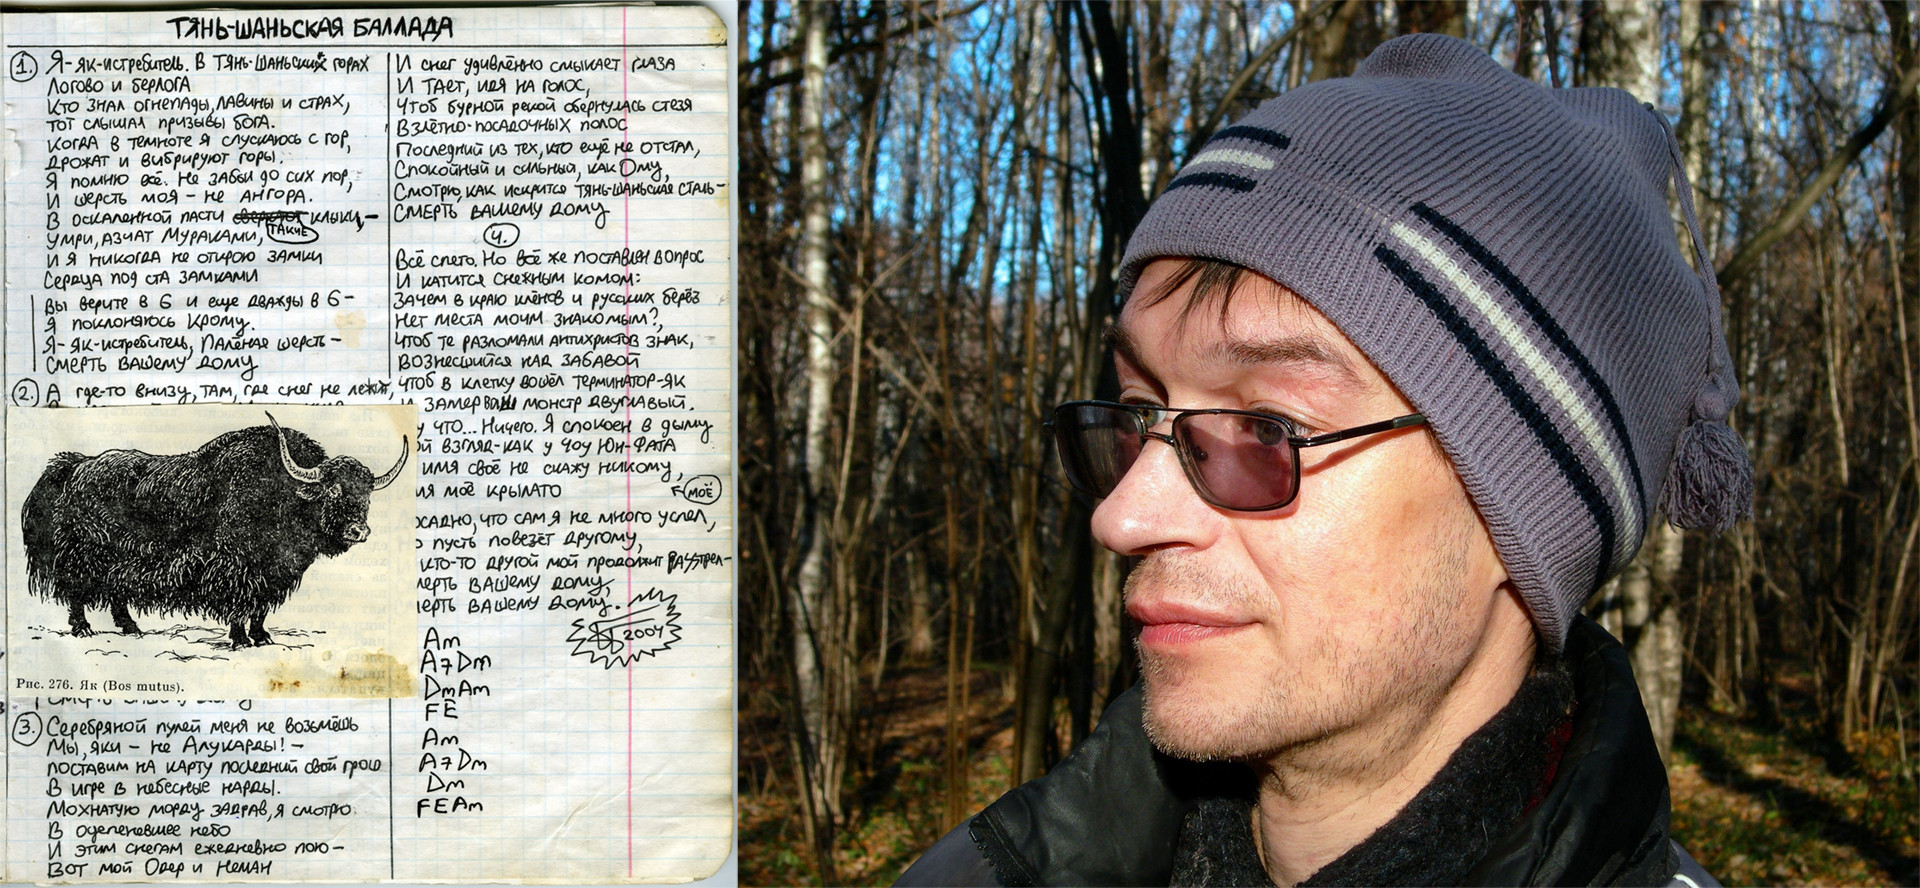 ТЯНЬ-ШАНЬСКАЯ БАЛЛАДА
1. Я-як-истребитель. В Тянь-Шаньских горах
Логово и берлога
Кто знал огнепады, лавины и страх,
Тот слышал призывы бога.
Когда в темноте я спускаюсь с гор,
Дрожат и вибрируют горы.
Я помню всё. Не забыл до сих пор,
И шерсть моя – не ангора.
В оскаленной пасти клыки, –
такие
Умри, азиат Мураками,
И я никогда не открою замки
Сердца под ста замками
Вы верите в 6 и ещё дважды в 6 –
Я поклоняюсь Крому.
Я-як-истребитель, Паленая шерсть –
Смерть вашему дому
2. А где-то внизу, там, где снег не лежит,
Рис. 276. Як (Bos mutus).
3. Серебряной пулей меня не возьмёшь
Мы, яки – не Алукарды! –
поставим на карту последний свой грош
В игре в небесные нарды.
Мохнатую морду задрав, я смотрю
В оцепеневшее небо
И этим снегам ежедневно пою –
Вот мой Одер и Неман
И снег удивлённо смыкает глаза
И тает, идя на голос,
Чтоб бурной рекой обернулась стезя
Взлётно-посадочных полос
Последний из тех, кто ещё не отстал,
Спокойный и сильный, как Ому,
Смотрю, как искрится тянь-шаньская сталь –
Смерть вашему дому
4.
Всё спето. Но всё же поставлен вопрос
И катится снежным комом:
Зачем в краю клёнов и русских берёз
Нет места моим знакомым?,
Чтоб те разломали антихристов знак,
Вознесшийся над забавой
Чтоб в клетку вошёл терминатор-як
И замер ваш монстр двуглавый.
у что... Ничего. Я спокоен в дыму
ой взгляд-как у Чоу Юн-Фата
имя своё не скажу никому,
ия моё крылато
моё
осадно, что сам я не много успел,
о пусть повезёт другому,
кто-то другой мой продолжит расстрел –
мерть вашему дому,
мерть вашему дому.
2004
Am
A7Dm
DmAm
FE
Am
A7Dm
Dm
FEAm